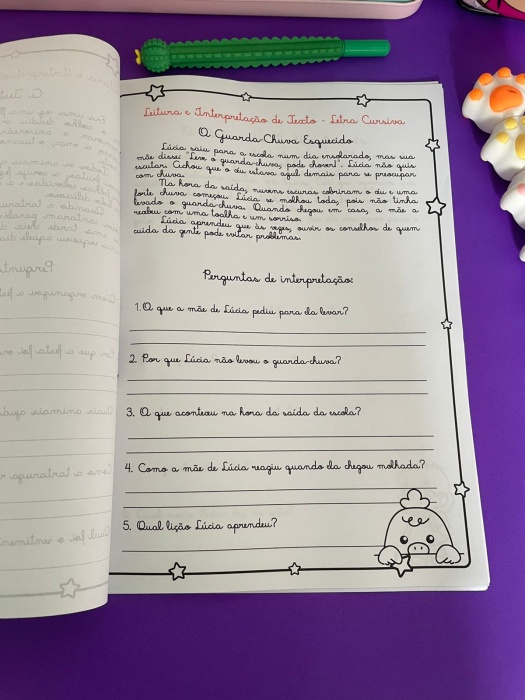 Leitura e Interpretação de Texto - Letra Cursiva
O Guarda-Chuva Esquecido
Lúcia saiu para a escola num dia ensolarado, mas sua
mãe disse: "Leve o guarda-chuva, pode chover!". Lúcia não quis
escutar. Achou que o céu estava azul demais para se preocupar
com chuva.
Na hora da saída, nuvens escuras cobriram o céu e uma
forte chuva começou. Lúcia se molhou toda, pois não tinha
levado o guarda-chuva. Quando chegou em casa, a mãe a
recebeu com uma toalha e um sorriso.
Lúcia aprendeu que às vezes, ouvir os conselhos de quem
cuida da gente pode evitar problemas.
Perguntas de interpretação:
1. O que a mãe de Lúcia pediu para ela levar?
2. Por que Lúcia não levou o guarda-chuva?
3. O que aconteceu na hora da saída da escola?
4. Como a mãe de Lúcia reagiu quando ela chegou molhada?
5. Qual lição Lúcia aprendeu?